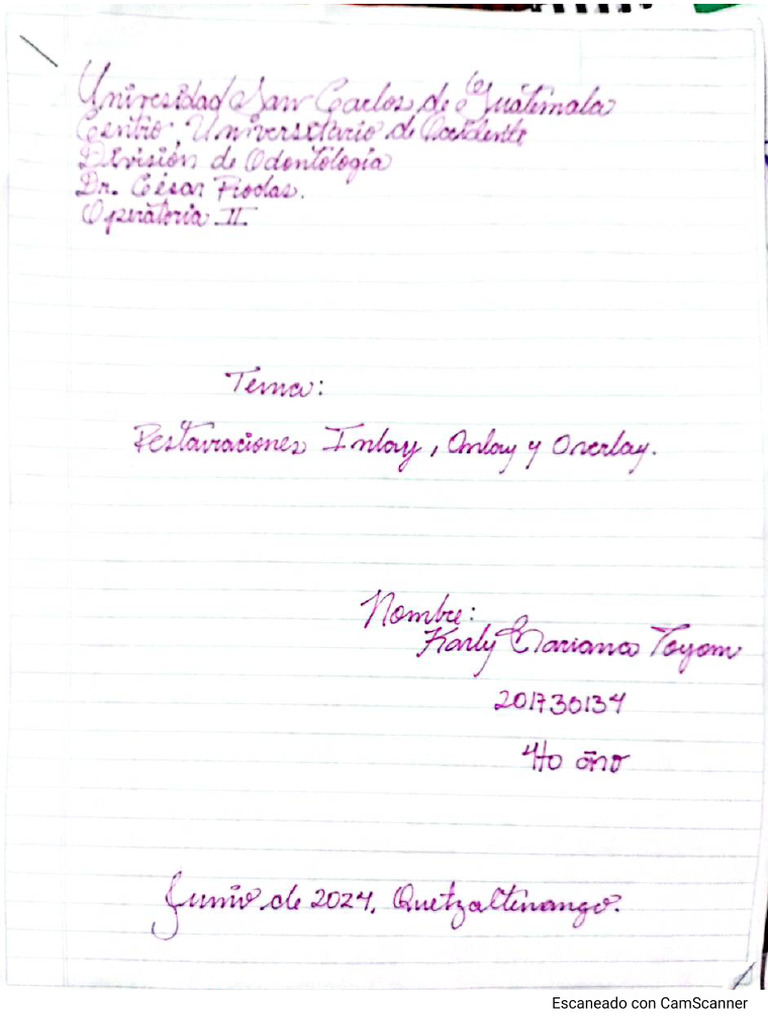 Universidad San Carlos de Guatemala
Centro Universitario de Occidente
División de Odontología
Dr. César
Operatoria II
Tema:
Restauraciones Inlay, Onlay y Overlay.
Nombre:
Karly Mariana Toyom
201730134
4to año
Junio de 2024, Quetzaltenango.
Escaneado con CamScanner